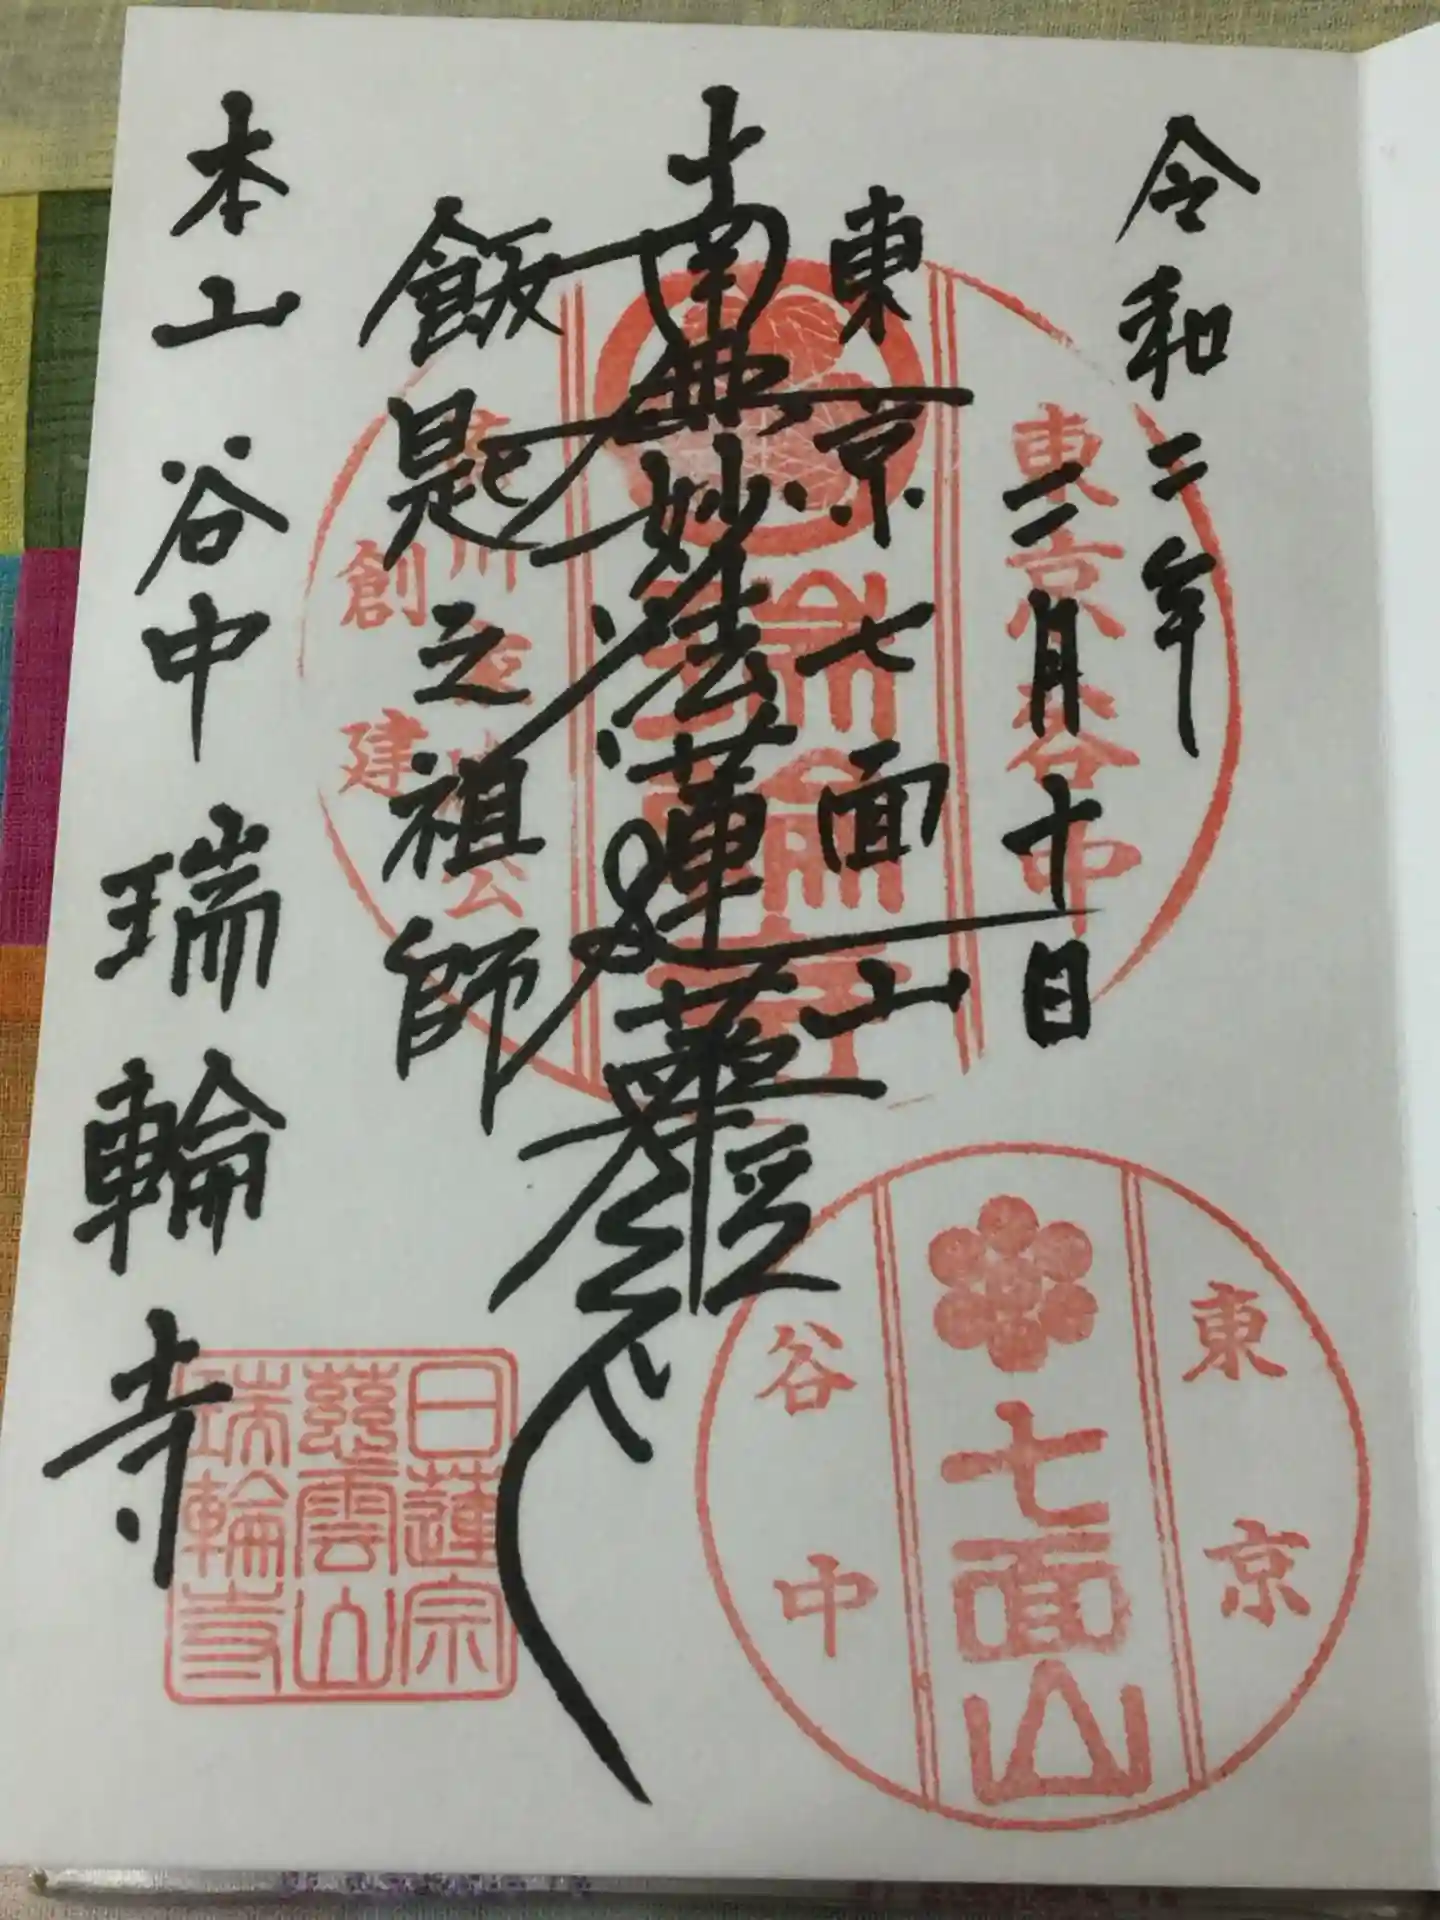 令和二年
二月十日
東京七面山
南無妙法蓮華経
飯是之祖師
本山谷中瑞輪寺
東京谷中
瑞輪寺
徳川家康公
創建
東京
七面山
谷中
日蓮宗
慈雲山
瑞輪寺